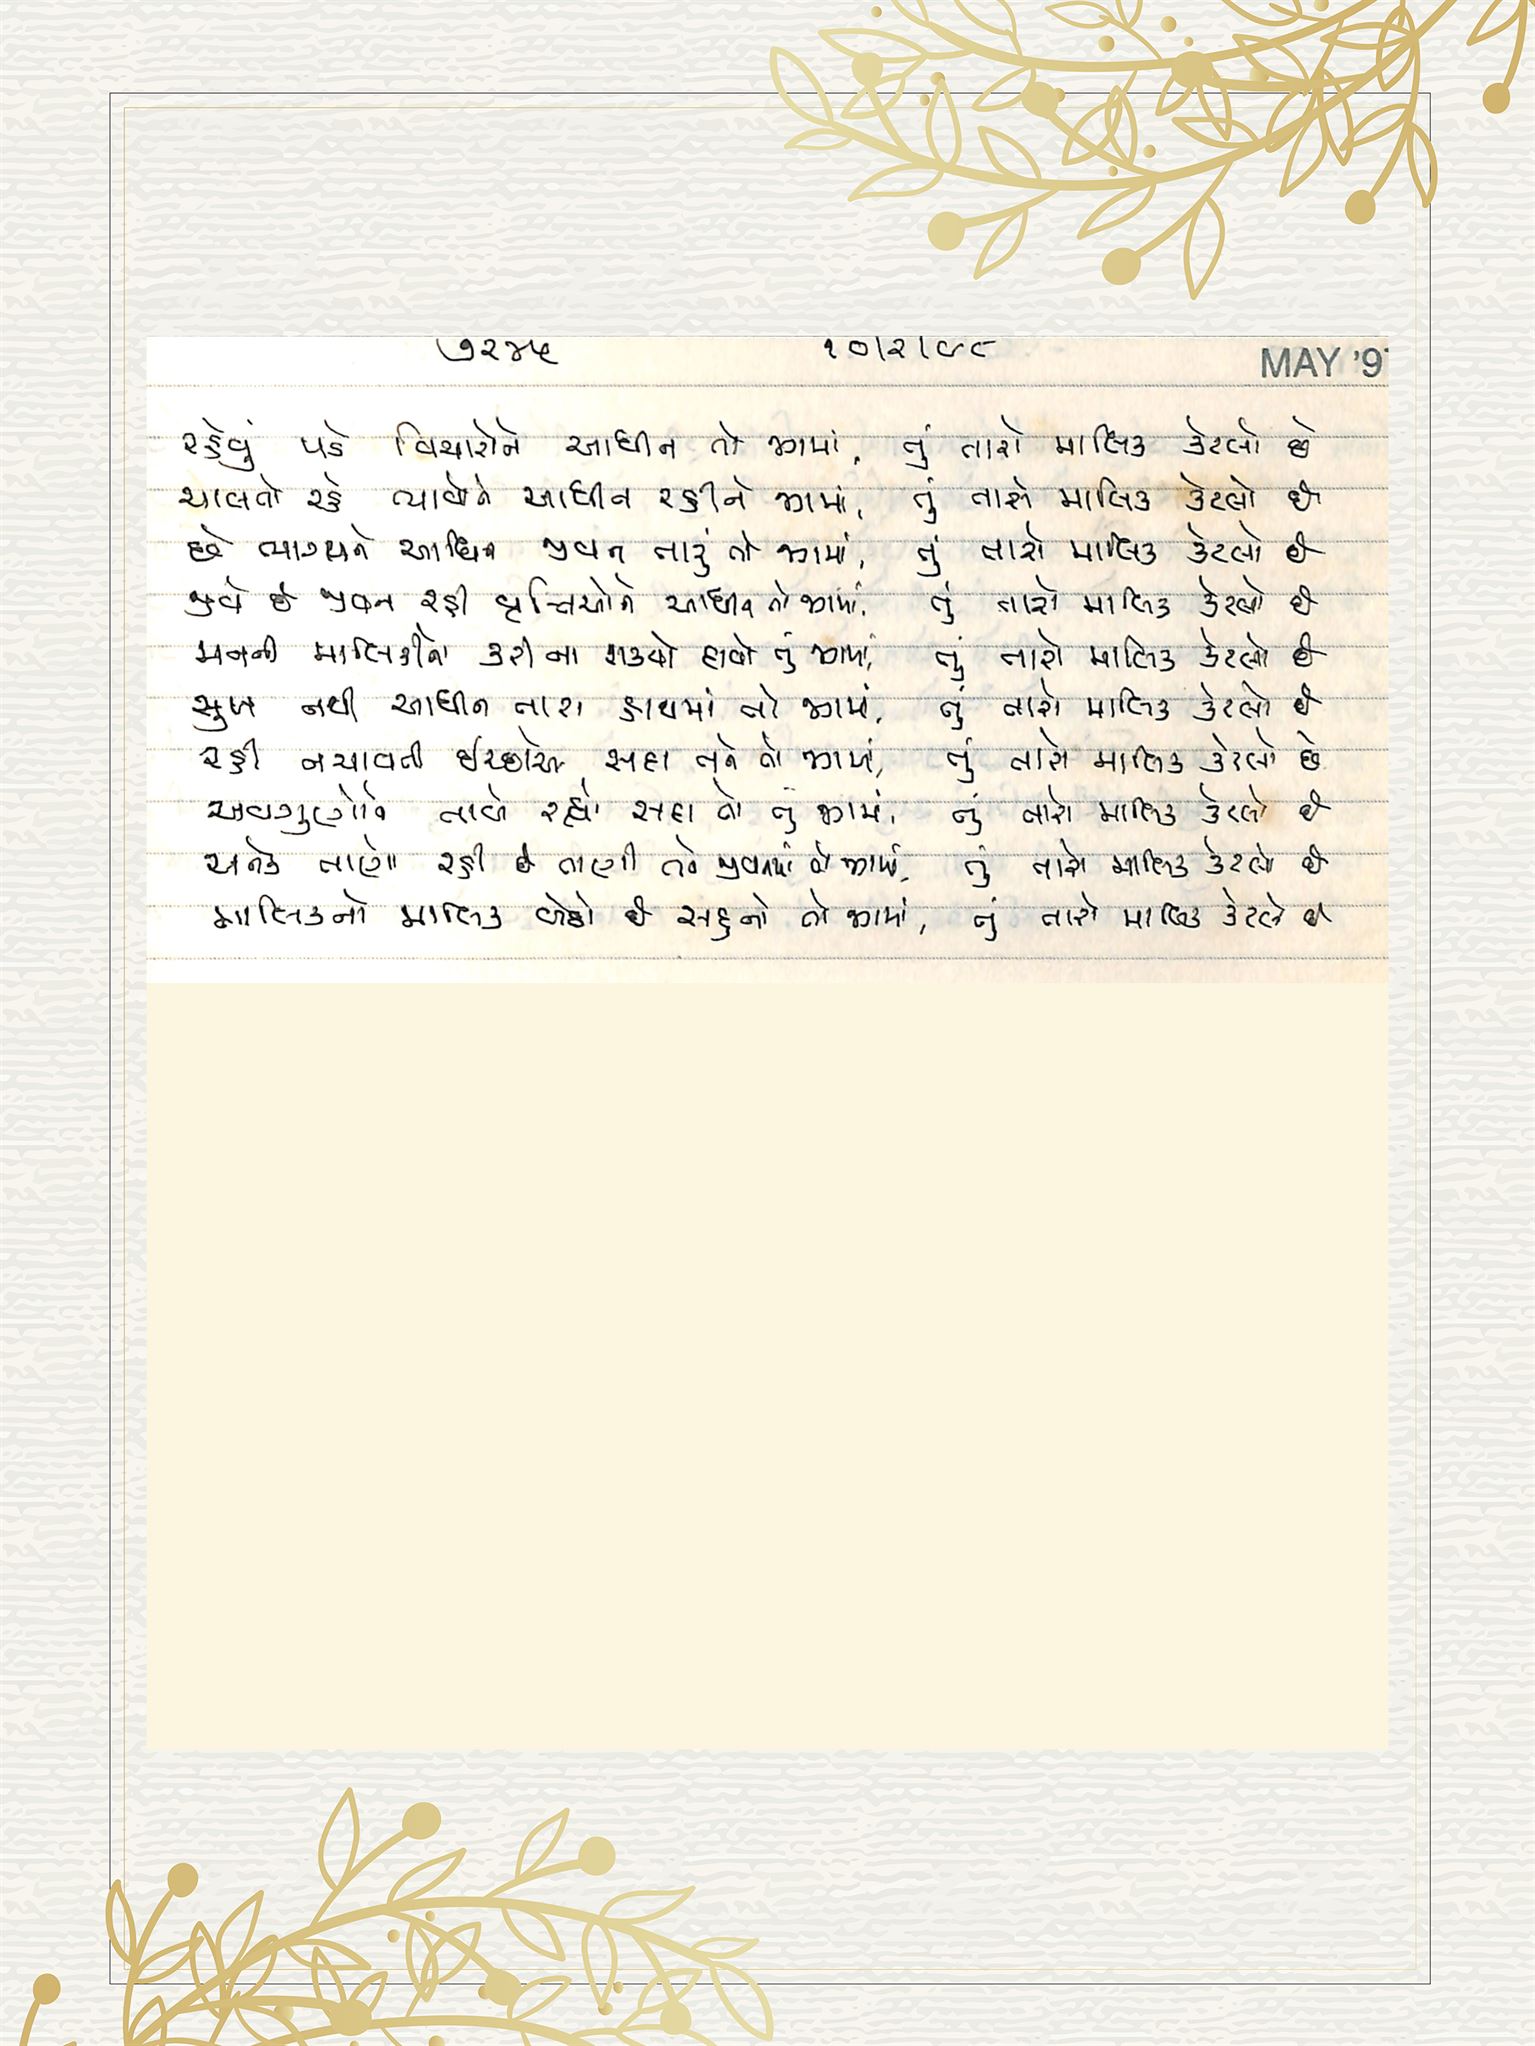 ૭૨૪૫ ૧૦/૨/૯૮ MAY '9
રહેવું પડે વિચારોને આધીન તો જામાં, તું તારો માલિક કેટલો છે
ચાલતો રહે ભાવોને આધીન રહીને જામાં, તું તારો માલિક કેટલો છે
છે ભાગ્યને આધિન જીવન તારું તો જામાં, તું તારો માલિક કેટલો છે
જીવે છે જીવન રહી વૃત્તિઓને આધીન તો જામાં, તું તારો માલિક કેટલો છે
મનની માલિકીનો કરી ના શક્યો દાવો તું જામાં, તું તારો માલિક કેટલો છે
સુખ નથી આધીન તારા હાથમાં તો જામાં, તું તારો માલિક કેટલો છે
રહી નચાવતી ઈચ્છાઓ સદા તને તો જામાં, તું તારો માલિક કેટલો છે
અવગુણોને તાબે રહ્યો સદા તો તું જામાં, તું તારો માલિક કેટલો છે
અનેક તાણો રહી છે તાણી તને જીવનમાં તો જામાં, તું તારો માલિક કેટલો છે
માલિકનો માલિક બેઠો છે સહુનો તો જામાં, તું તારો માલિક કેટલો છે